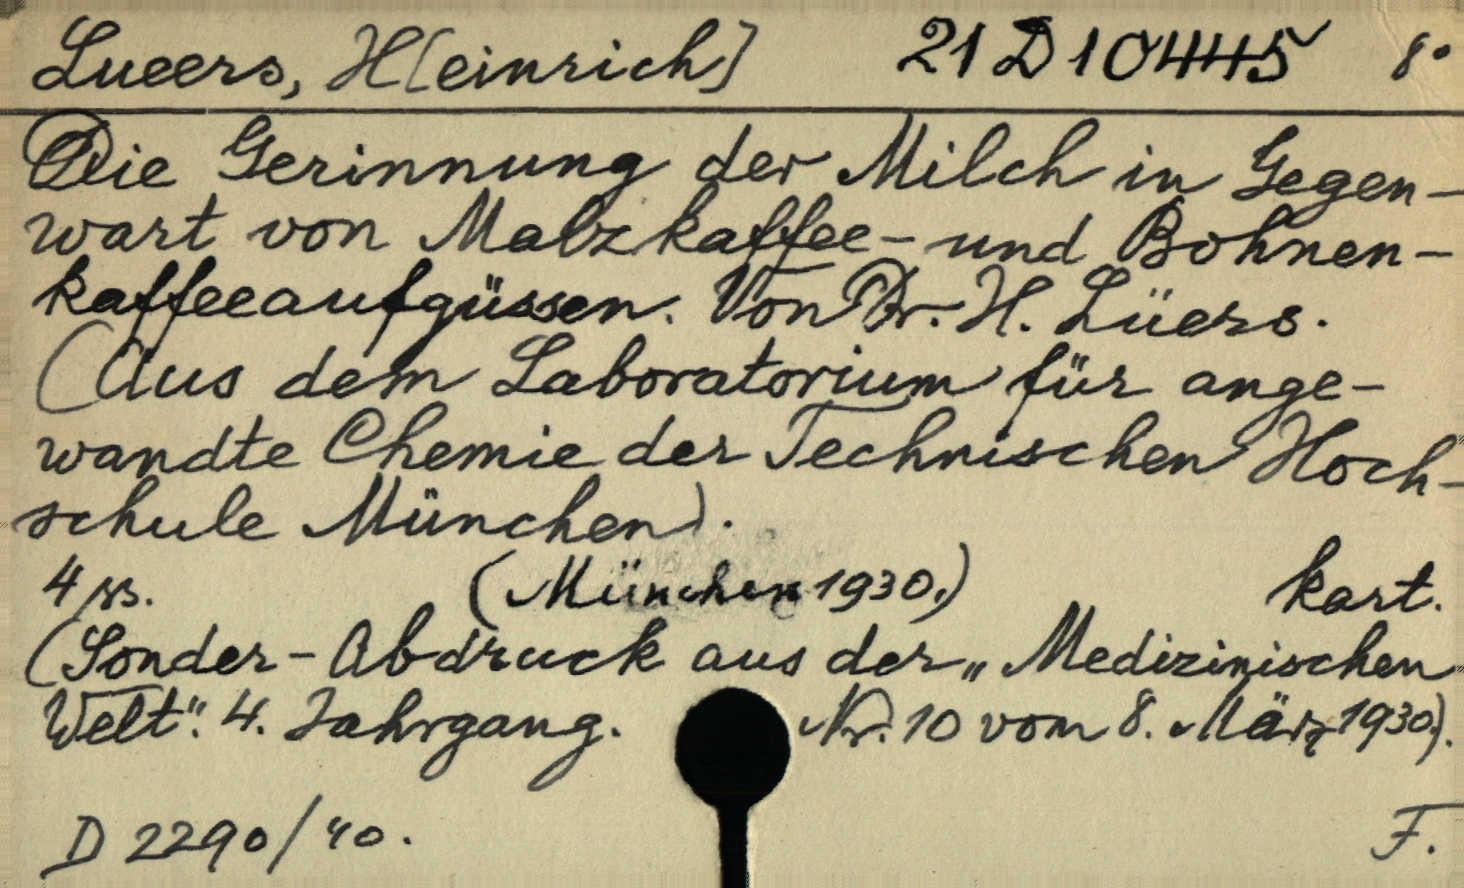 Lueers, H[einrich] 21 D 10445 8°
Die Gerinnung der Milch in Gegen-
wart von Malzkaffee- und Bohnen-
kaffeeaufgüssen. Von Dr. H. Lüers.
(Aus dem Laboratorium für ange-
wandte Chemie der Technischen Hoch-
schule München).
4 ss. (München 1930.) kart.
(Sonder-Abdruck aus der „Medizinischen
Welt“. 4. Jahrgang. Nr. 10 vom 8. März 1930.).
D 2290/40. F.